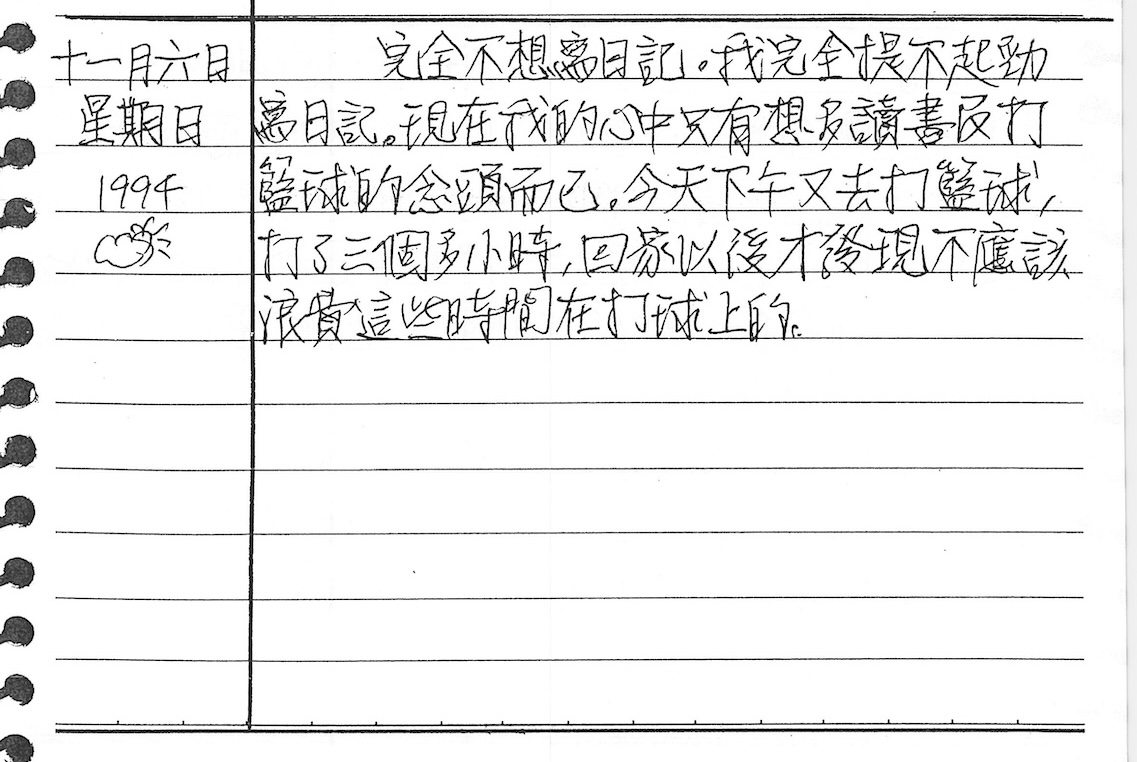 十一月六日
星期日
1994
完全不想寫日記。我完全提不起勁
寫日記。現在我的心中只有想多讀書及打
籃球的念頭而已。今天下午又去打籃球,
打了三個多小時,回家以後才發現不應該
浪費這些時間在打球上的。